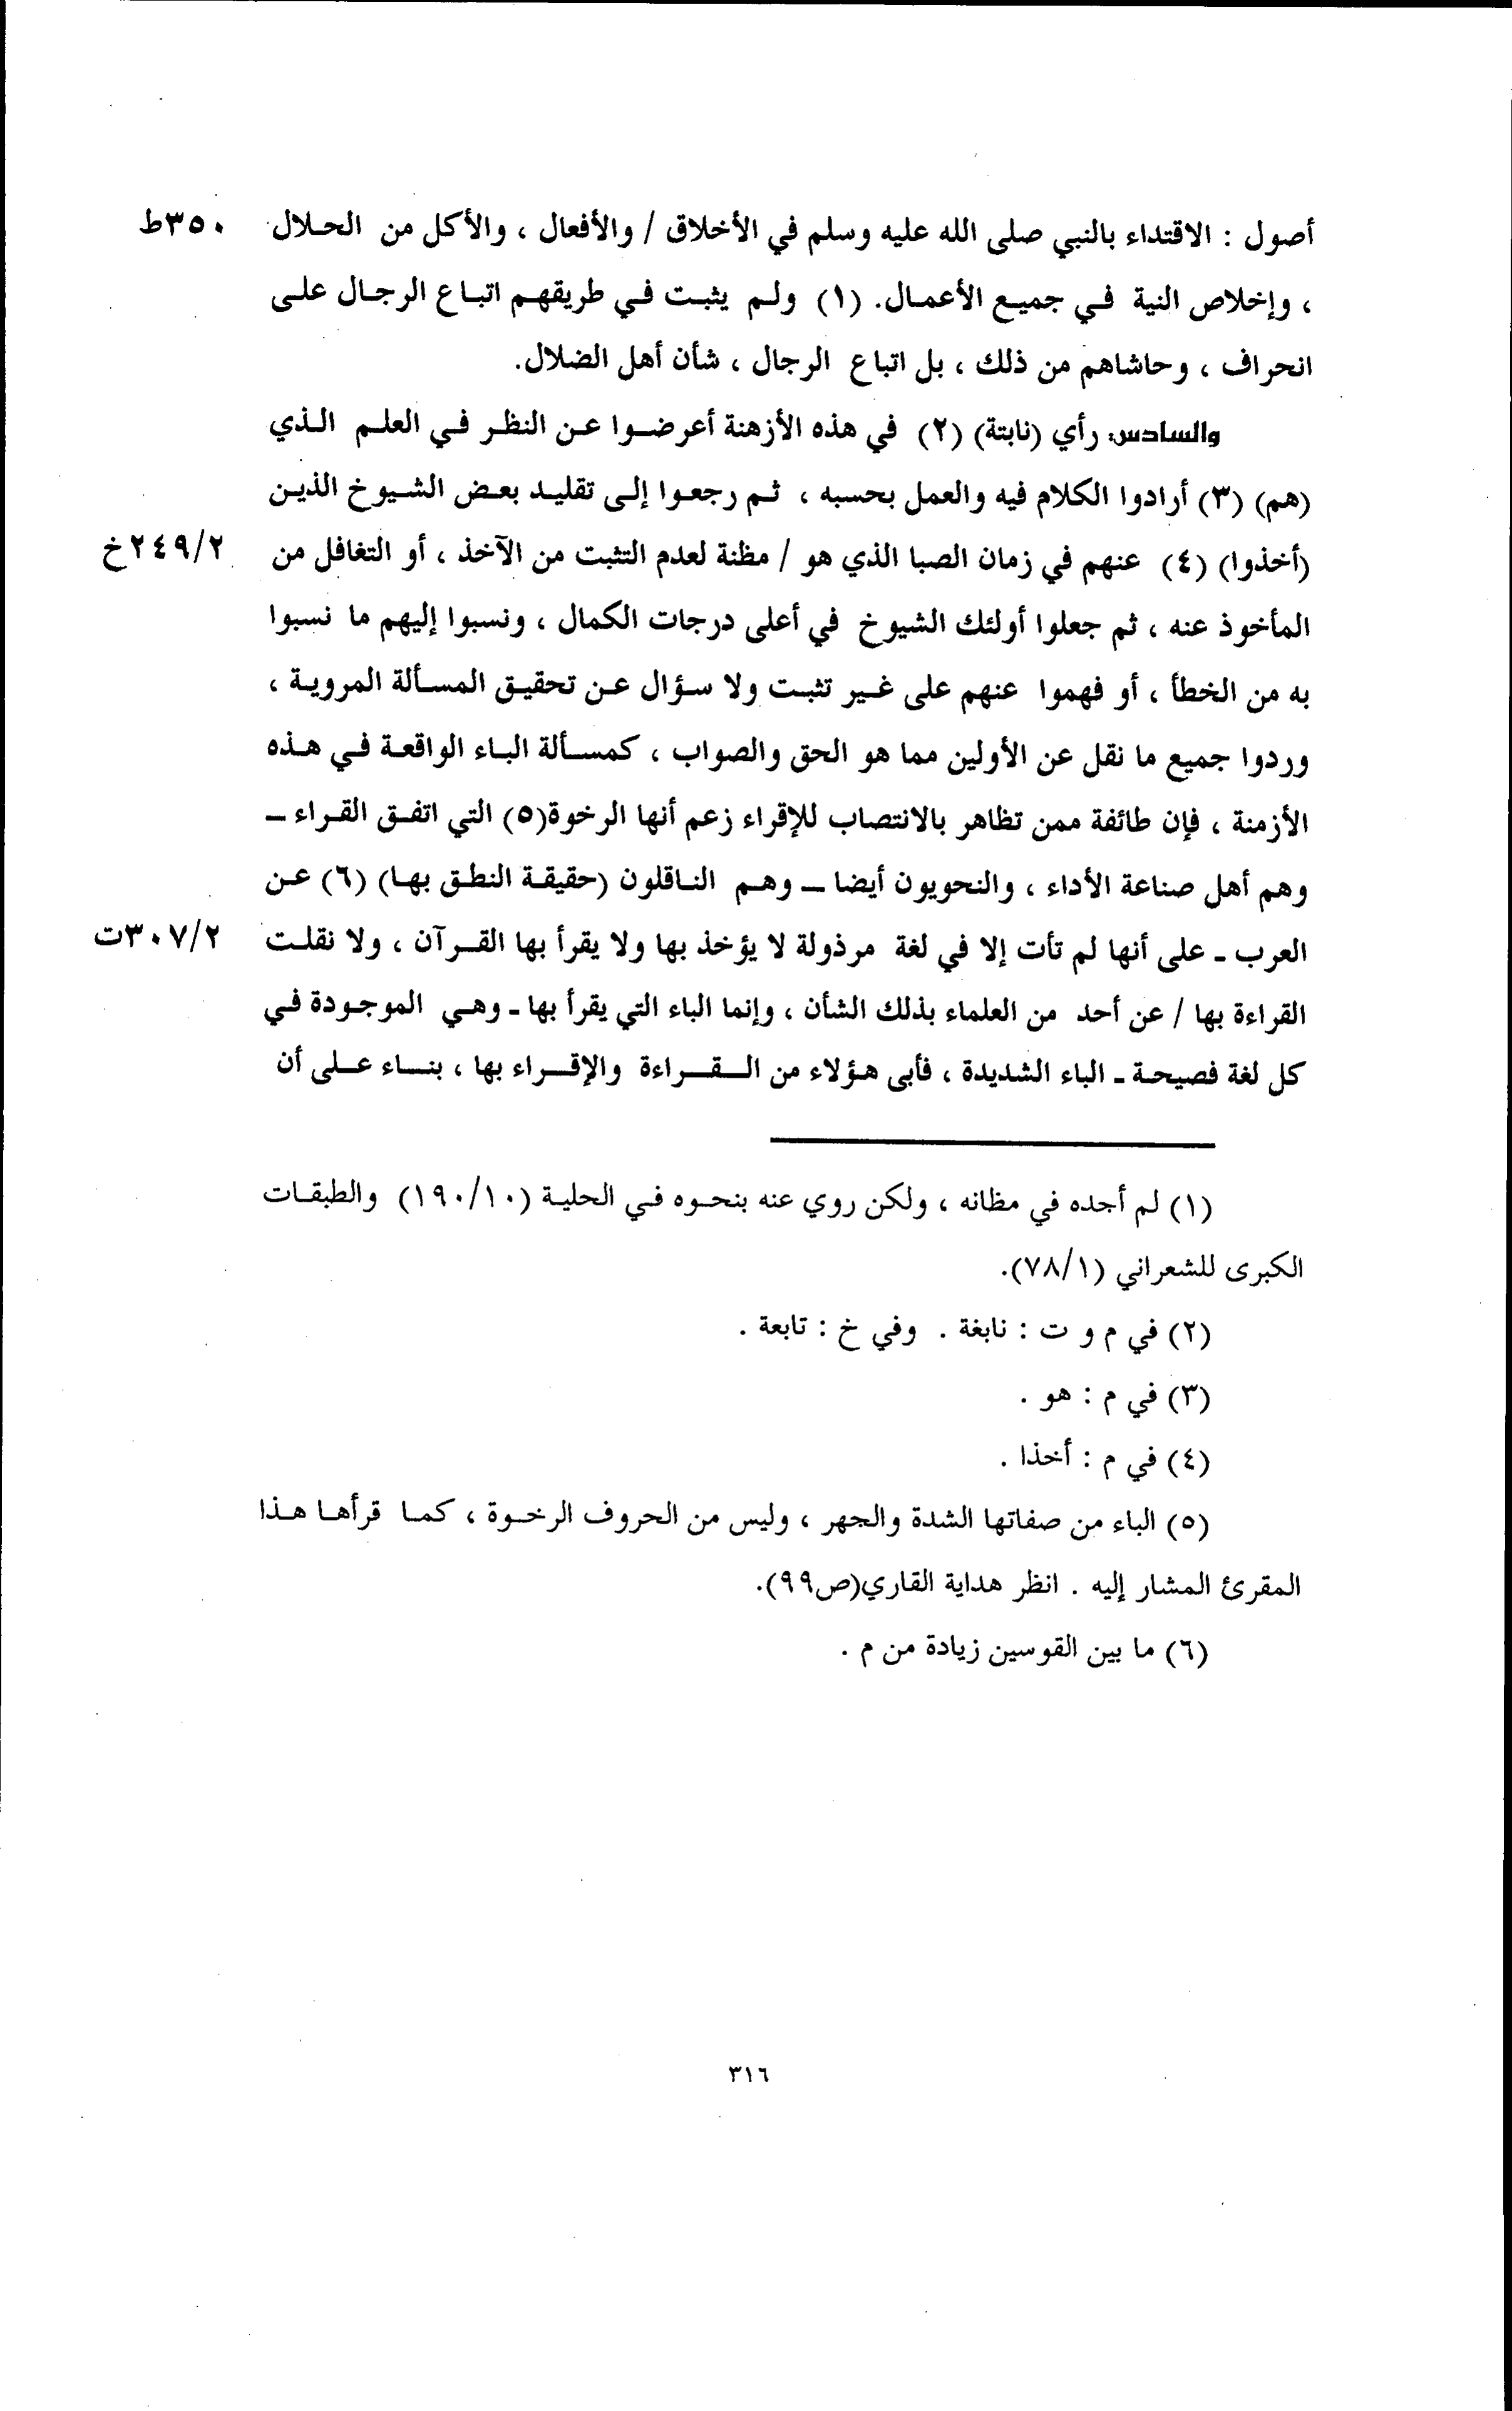 أصول : الاقتداء بالنبي صلى الله عليه وسلم في الأخلاق / والأفعال ، والأكل من الحلال ٣٥٠ط
، وإخلاص النية في جميع الأعمال. (١) ولم يثبت في طريقهم اتباع الرجال على
انحراف ، وحاشاهم من ذلك ، بل اتباع الرجال ، شأن أهل الضلال.
والسادس: رأي (نابتة) (٢) في هذه الأزهنة أعرضوا عن النظر في العلم الذي
(هم) (٣) أرادوا الكلام فيه والعمل بحسبه ، ثم رجعوا إلى تقليد بعض الشيوخ الذين
(أخذوا) (٤) عنهم في زمان الصبا الذي هو / مظنة لعدم التثبت من الآخذ ، أو التغافل من ٢٤٩/٢خ
المأخوذ عنه ، ثم جعلوا أولئك الشيوخ في أعلى درجات الكمال ، ونسبوا إليهم ما نسبوا
به من الخطأ ، أو فهموا عنهم على غير تثبت ولا سؤال عن تحقيق المسألة المروية ،
وردوا جميع ما نقل عن الأولين مما هو الحق والصواب ، كمسألة الباء الواقعة في هذه
الأزمنة ، فإن طائفة ممن تظاهر بالانتصاب للإقراء زعم أنها الرخوة(٥) التي اتفق القراء ــ
وهم أهل صناعة الأداء ، والنحويون أيضا ــ وهم الناقلون (حقيقة النطق بها) (٦) عن
العرب ـ على أنها لم تأت إلا في لغة مرذولة لا يؤخذ بها ولا يقرأ بها القرآن ، ولا نقلت ٣٠٧/٢ت
القراءة بها / عن أحد من العلماء بذلك الشأن ، وإنما الباء التي يقرأ بها ـ وهي الموجودة في
كل لغة فصيحة ـ الباء الشديدة ، فأبى هؤلاء من القراءة والإقراء بها ، بناء على أن
(١) لم أجده في مظانه ، ولكن روي عنه بنحوه في الحلية (١٩٠/١٠) والطبقات
الكبرى للشعراني (٧٨/١).
(٢) في م و ت : نابغة . وفي خ : تابعة .
(٣) في م : هو .
(٤) في م : أخذا .
(٥) الباء من صفاتها الشدة والجهر ، وليس من الحروف الرخوة ، كما قرأها هذا
المقرئ المشار إليه . انظر هداية القاري(ص٩٩).
(٦) ما بين القوسين زيادة من م .
٣١٦